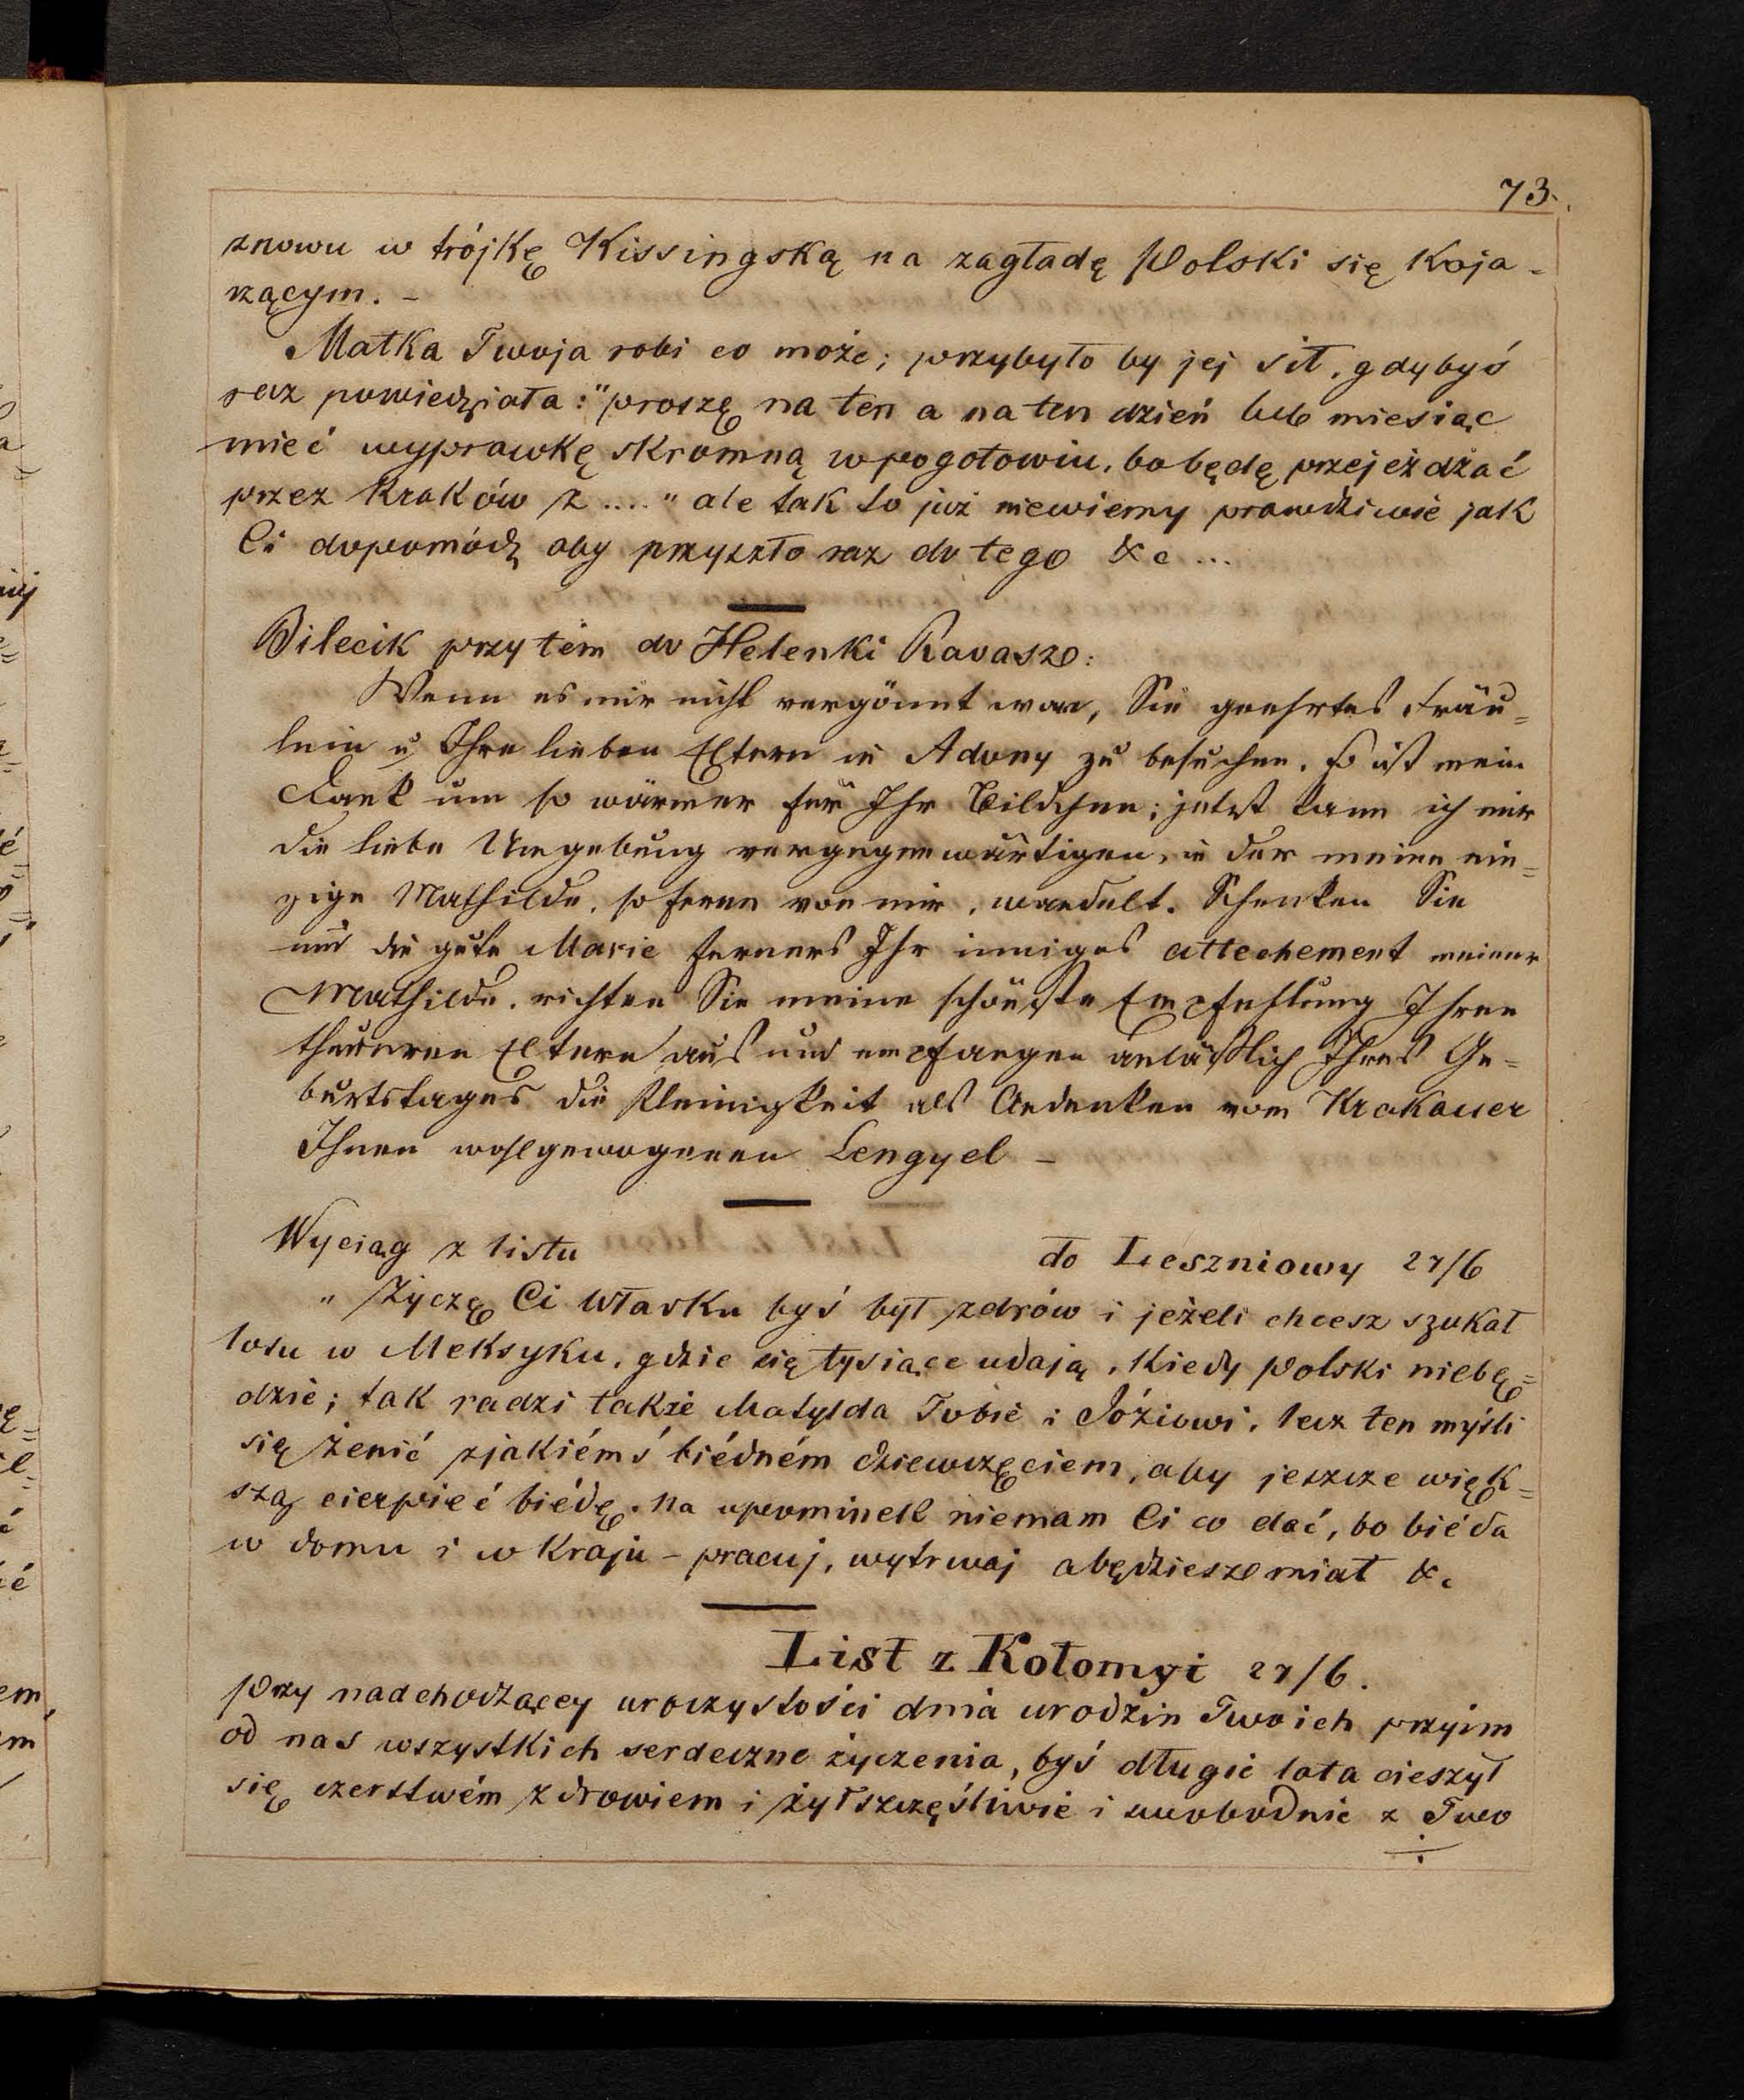 73.
znowu w trójkę Kissingską na zagładę Polski się koja-
rzącym. -
Matka Twoja robi co może; przybyło by jej sił, gdybyś
raz powiedziała: "proszę na ten a na ten dzień lub miesiąc
mieć wyprawkę skromną w pogotowiu, bo będę przejeżdżać
przez Kraków z ...." ale tak to już niewiemy prawdziwie jak
Ci dopomódz aby przyszło raz do tego &c ...
Bilecik przytém do Helenki Ravasz:
Wenn es mir nicht vergönnt war, Sie geehrtes Fräu=
lein u Ihre lieben Eltern in Adony zu besuchen, so ist mein
Dank um so wärmer für Ihr Bildchen; jetzt kann ich mir
die liebe Umgebung vergegenwärtigen, in der meine ein=
zige Mathilde, so ferne von mir, wandelt. Schenken Sie
und die gute Marie ferners Ihr inniges attechement meiner
Mathilde, richten Sie meine schönste Empfehlung Ihren
theueren Eltern aus und empfangen anläßlich Ihres Ge=
burtstages die Kleinigkeit als Andenken vom Krakauer
Ihnen wohlgewogenen Lengyel -
Wyciąg z listu do Leszniowy 27/6
" Życzę Ci Władku byś był zdrów i jeżeli chcesz szukał
losu w Meksyku, gdzie się tysiące udają, kiedy Polski niebę=
dzie; tak radzi także Matylda Tobie i Józiowi, lecz ten myśli
się żenić z jakiémś biédném dziewczęciem, aby jeszcze więk=
szą cierpieć biédę. Na upominek niemam Ci co dać, bo biéda
w domu i w kraju - pracuj, wytrwaj a będziesz miał &c
List z Kołomyi 27/6.
Przy nadchodzącey uroczystości dnia urodzin Twoich przyim
od nas wszystkich serdeczne życzenia, byś długie lata cieszył
się czerstwém zdrowiem i żył szczęśliwie i swobodnie z Two